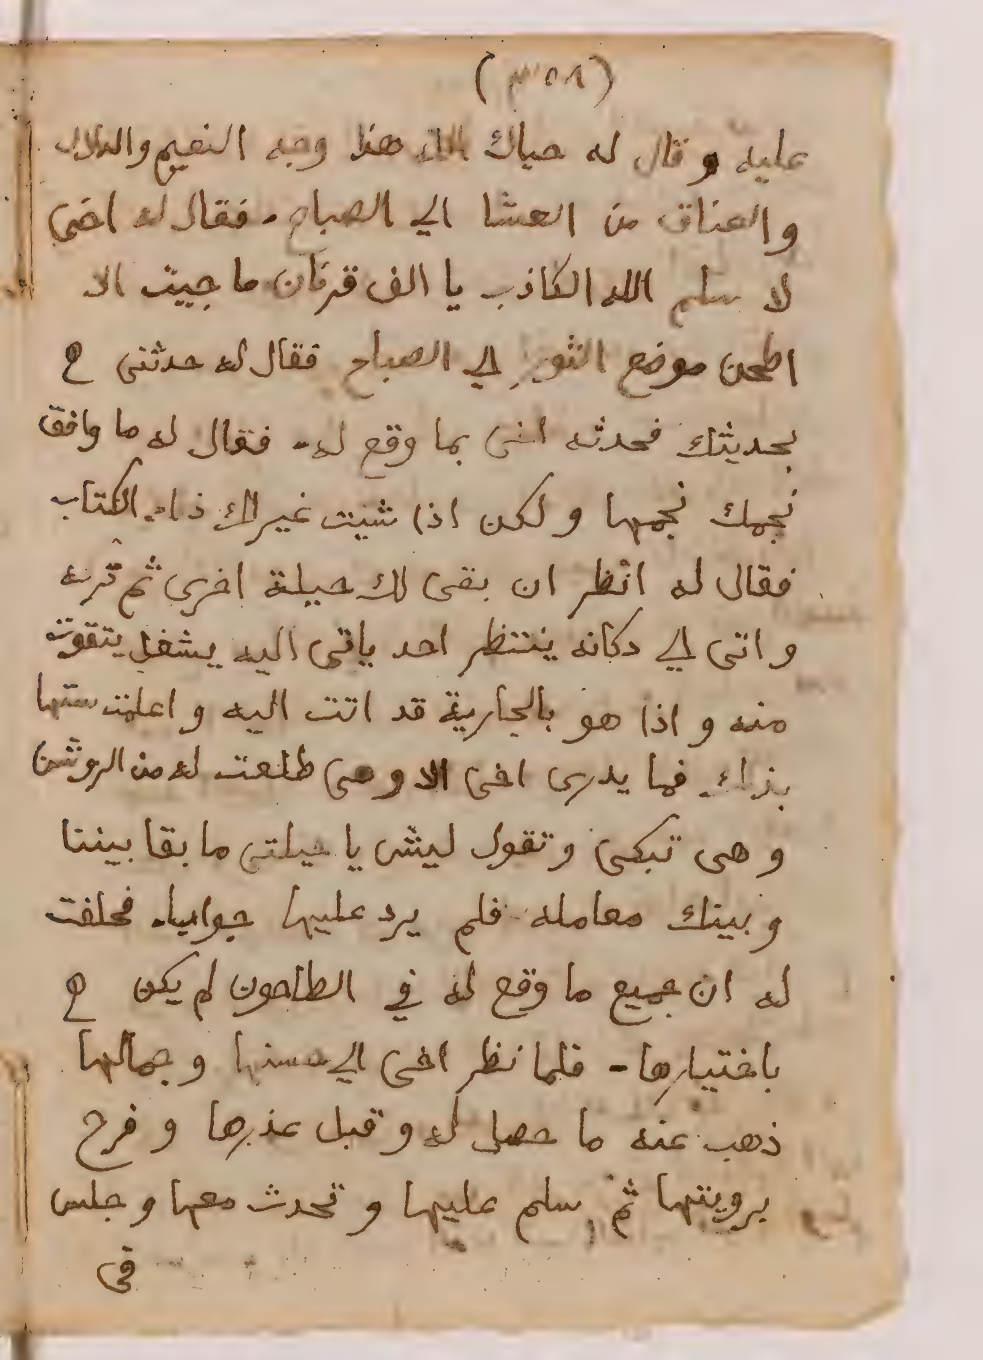 (٣٥٨)
عليه وقال له حياك الله هذا وجه النعيم والدلال
والعناق من العشا الي الصباح۔ فقال له اخى
لا سلم الله الكاذب يا الف قرنان ما جيت الا
اطحن موضع الثور الي الصباح فقال له حدثنى
بحديثك فحدثه اخى بما وقع له۔ فقال له ما وافق
نجمك نجمها ولكن اذا شيت غيرلك ذلك الكتاب
فقال له انظر ان بقى لك حيلة اخرى ثم تركه
واتى الي دكانه ينتظر احد ياتى اليه بشغل يتقوت
منه واذا هو بالجارية قد اتت اليه واعلمت ستها
بذلك فما يدرى اخى الا وهى طلعت له من الروشن
وهى تبكى وتقول ليش يا حيلتى ما بقا بيننا
وبينك معامله فلم يرد عليها جوابا۔ فحلفت
له ان جميع ما وقع له في الطاحون لم يكن
باختيارها۔ فلما نظر اخى الي حسنها وجمالها
ذهب عنه ما حصل له وقبل عذرها وفرح
برويتها ثم سلم عليها وتحدث معها وجلس
فى